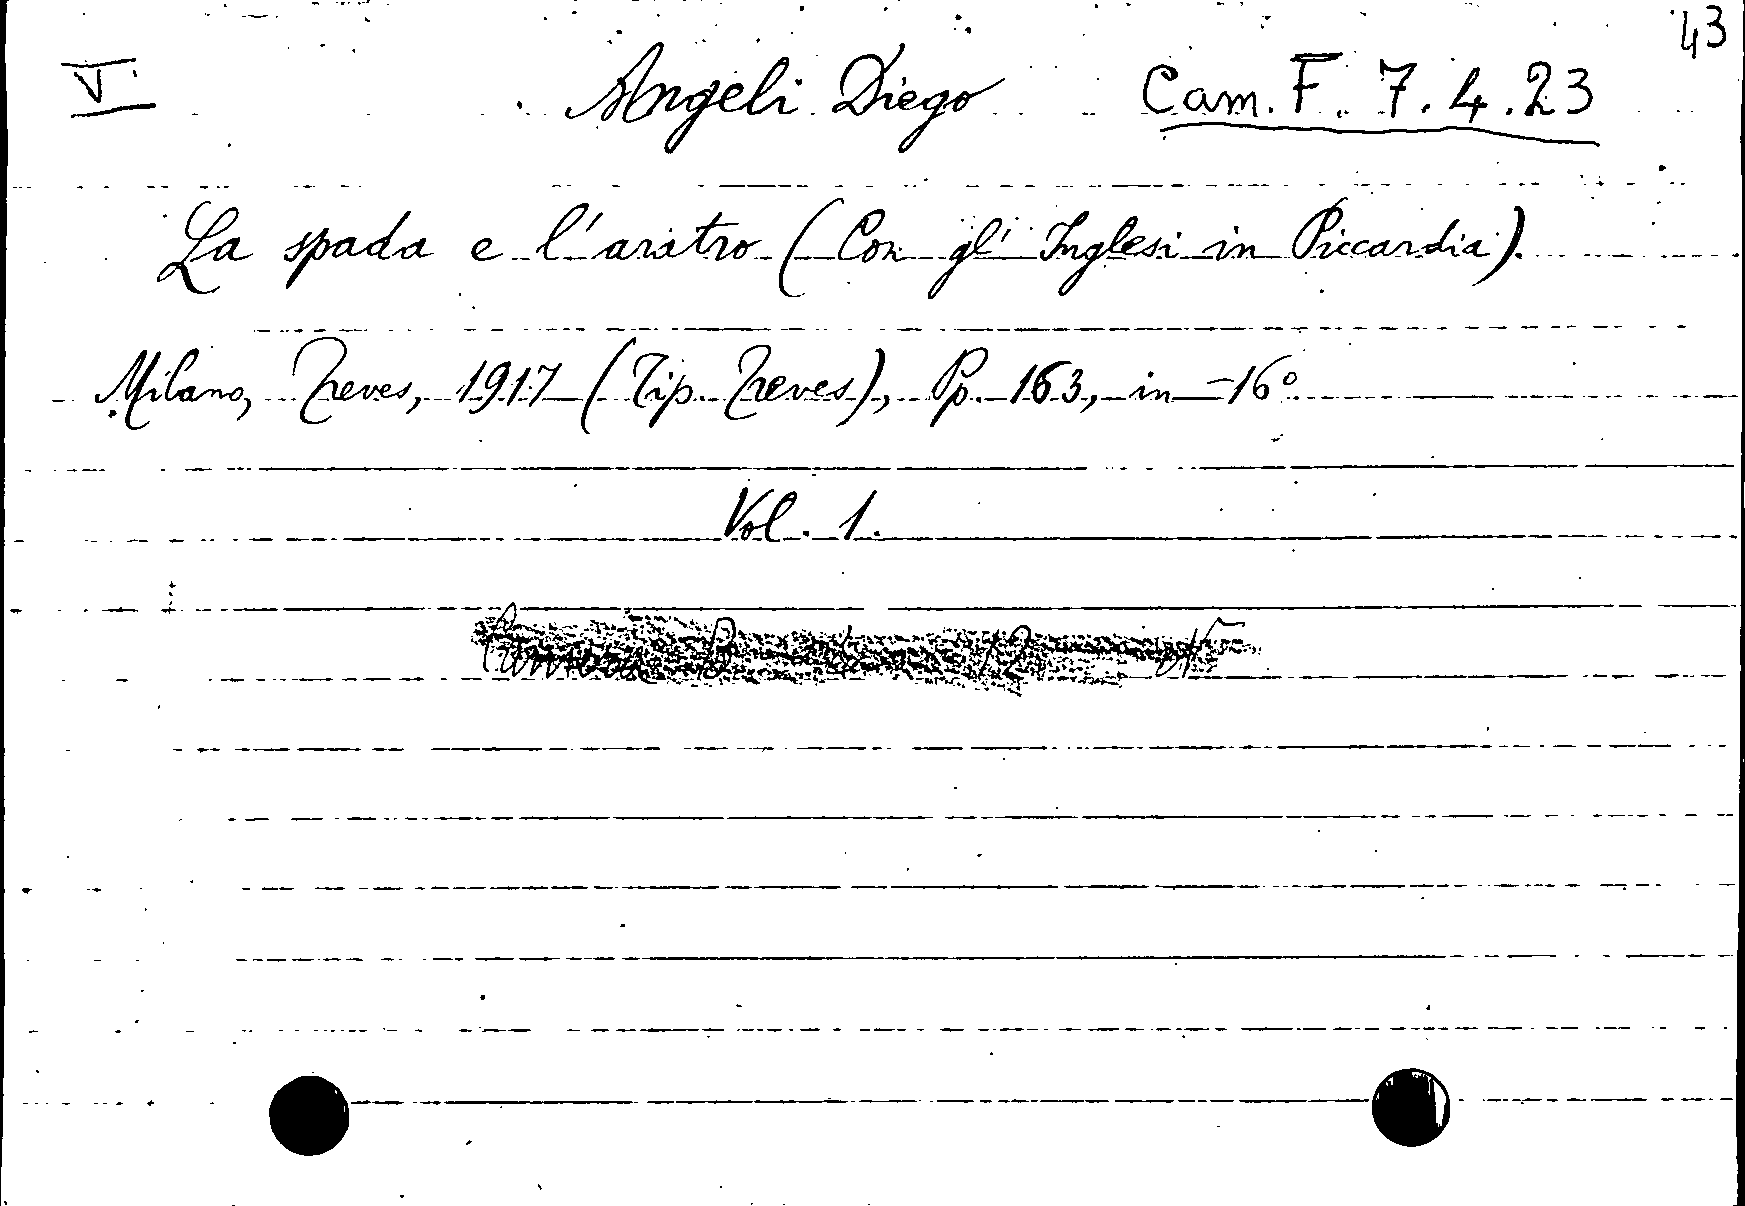 43
V. Angeli Diego Cam. F. 7.4.23
La spada e l'aratro (Con gl' Inglesi in Piccardia).
Milano, Treves, 1917 (Tip. Treves), Pp. 163, in-16°
Vol. 1.
Camera B 12